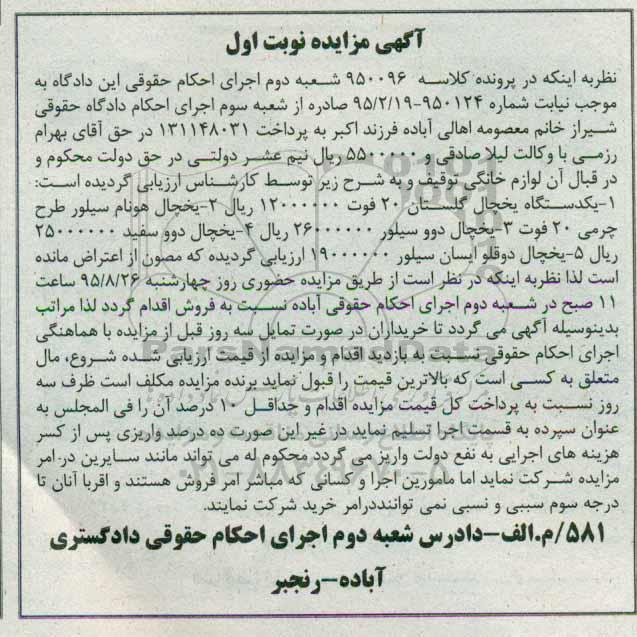 آگهی مزایده نوبت اول
نظربه اینکه در پرونده کلاسه ۹۵۰۰۹۶ شعبه دوم اجرای احکام حقوقی این دادگاه به
موجب نیابت شماره ۹۵۰۱۲۴-۹۵/۲/۱۹ صادره از شعبه سوم اجرای احکام دادگاه حقوقی
شیراز خانم معصومه اهالی آباده فرزند اکبر به پرداخت ۱۳۱۱۴۸۰۳۱ در حق آقای بهرام
رزمی با وکالت لیلا صادقی و ۵۵۰۰۰۰۰ ریال نیم عشر دولتی در حق دولت محکوم و
در قبال آن لوازم خانگی توقیف و به شرح زیر توسط کارشناس ارزیابی گردیده است:
۱-یکدستگاه یخچال گلستان ۲۰ فوت ۱۲۰۰۰۰۰۰ ریال ۲-یخچال هونام سیلور طرح
چرمی ۲۰ فوت ۳-یخچال دوو سیلور ۲۶۰۰۰۰۰۰ ریال ۴-یخچال دوو سفید ۲۵۰۰۰۰۰۰
ریال ۵-یخچال دوقلو ایسان سیلور ۱۹۰۰۰۰۰۰ ارزیابی گردیده که مصون از اعتراض مانده
است لذا نظربه اینکه در نظر است از طریق مزایده حضوری روز چهارشنبه ۹۵/۸/۲۶ ساعت
۱۱ صبح در شعبه دوم اجرای احکام حقوقی آباده نسبت به فروش اقدام گردد لذا مراتب
بدینوسیله آگهی می گردد تا خریداران در صورت تمایل سه روز قبل از مزایده با هماهنگی
اجرای احکام حقوقی نسبت به بازدید اقدام و مزایده از قیمت ارزیابی شده شروع، مال
متعلق به کسی است که بالاترین قیمت را قبول نماید برنده مزایده مکلف است ظرف سه
روز نسبت به پرداخت کل قیمت مزایده اقدام و حداقل ۱۰ درصد آن را فی المجلس به
عنوان سپرده به قسمت اجرا تسلیم نماید در غیر این صورت ده درصد واریزی پس از کسر
هزینه های اجرایی به نفع دولت واریز می گردد محکوم له می تواند مانند سایرین در امر
مزایده شرکت نماید اما مامورین اجرا و کسانی که مباشر امر فروش هستند و اقربا آنان تا
درجه سوم سببی و نسبی نمی تواننددرامر خرید شرکت نمایند.
۵۸۱/م.الف-دادرس شعبه دوم اجرای احکام حقوقی دادگستری
آباده-رنجبر
ParsNamadData
۰۲۱-۸۸۳۴۹۶۷۰-۵